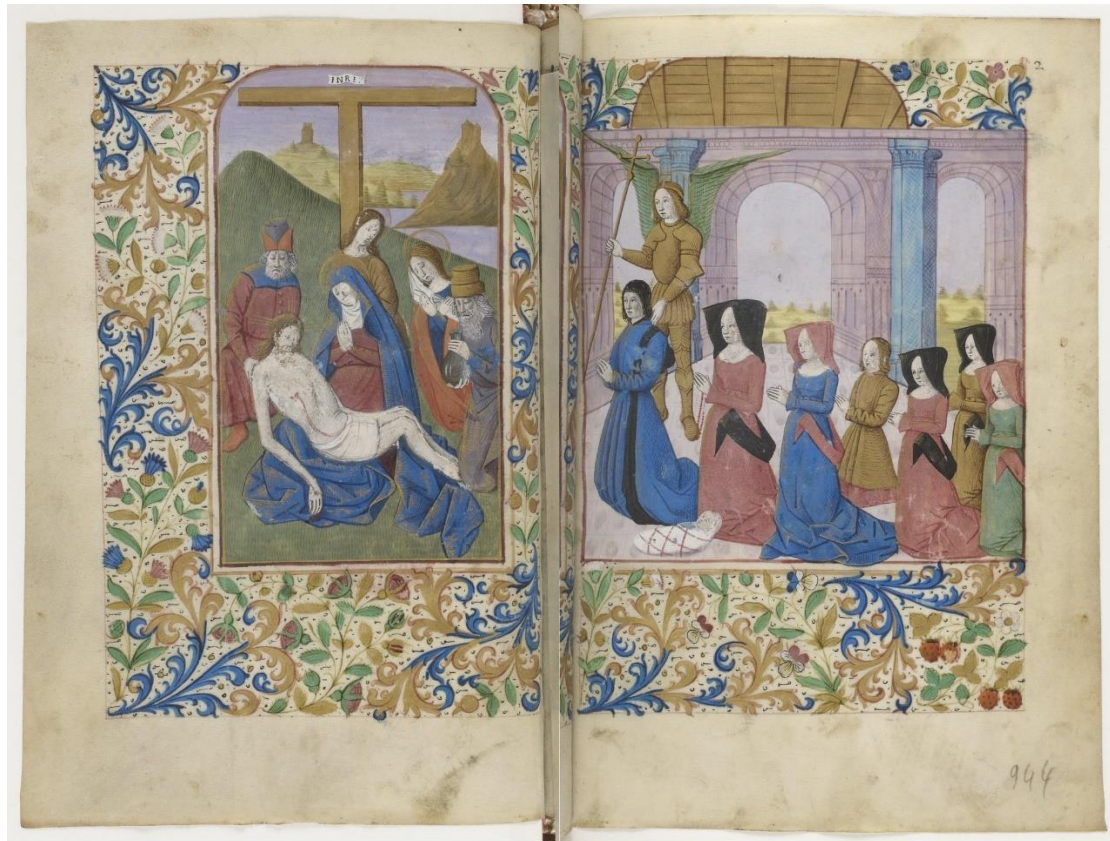 INRI.
2
944